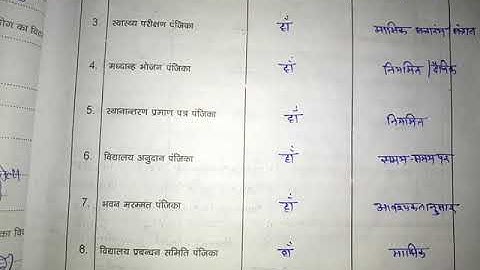 3. स्वास्थ्य परीक्षण पंजिका हाँ मासिक
4. मध्यान्ह भोजन पंजिका हाँ नियमित / दैनिक
5. स्थानान्तरण प्रमाण पत्र पंजिका हाँ नियमित
6. विद्यालय अनुदान पंजिका हाँ समय-समय पर
7. भवन मरम्मत पंजिका हाँ आवश्यकतानुसार
8. विद्यालय प्रबन्धन समिति पंजिका हाँ मासिक